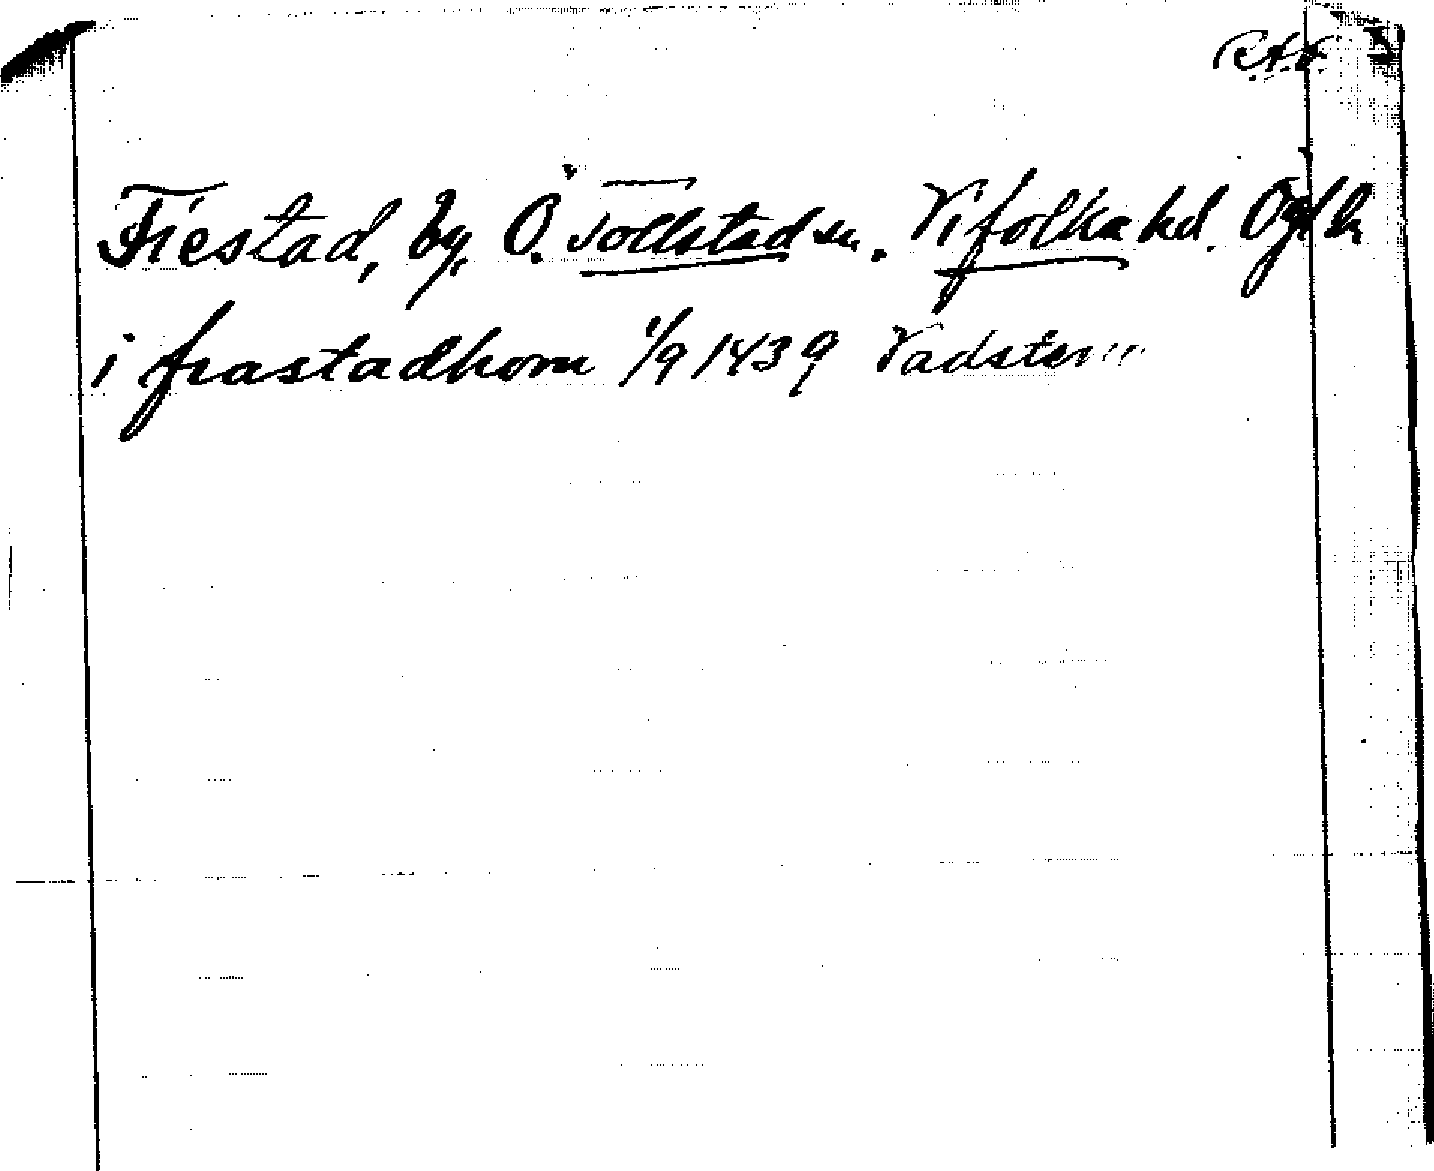 R.A.
Fiestad, by, Ö. Tollstad sn. Vifolka hd. Ögl.
i frastadhom 1/9 1439 Vadstena